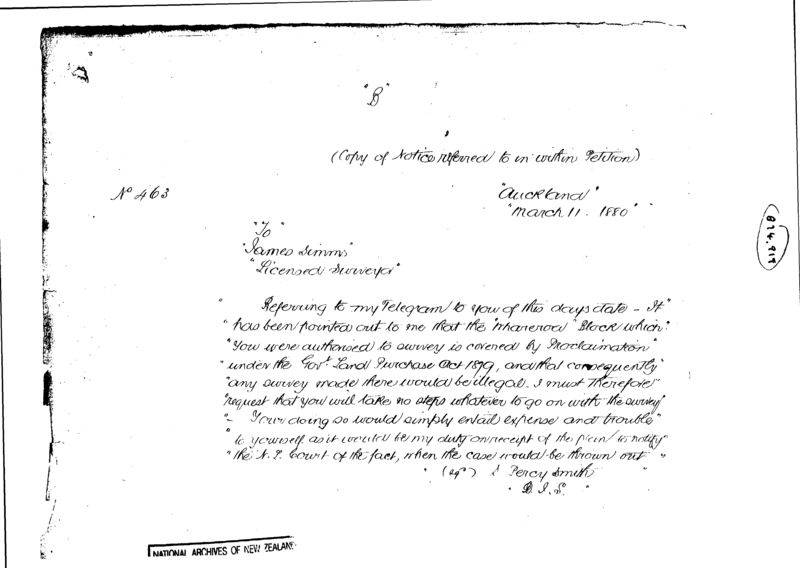 "B"
(Copy of Notice referred to in within Petition)
No 463
"Auckland"
"March 11. 1880"
"To"
"James Simms"
"Licensed Surveyor"
" Referring to my Telegram to you of this days date - It "
" has been pointed out to me that the "Maneroa" Block which "
" You were authorised to survey is covered by Proclamation "
" under the Govt Land Purchase Act 1879, and that consequently "
" any survey made there would be illegal. I must Therefore "
" request that you will take no steps whatever to go on with the survey "
" - Your doing so would simply entail expense and trouble "
" to yourself as it would be my duty on receipt of the plan to notify "
" the N. L. Court of the fact, when the case would be thrown out "
" (sgd) S Percy Smith
" D. I. S. "
NATIONAL ARCHIVES OF NEW ZEALAND